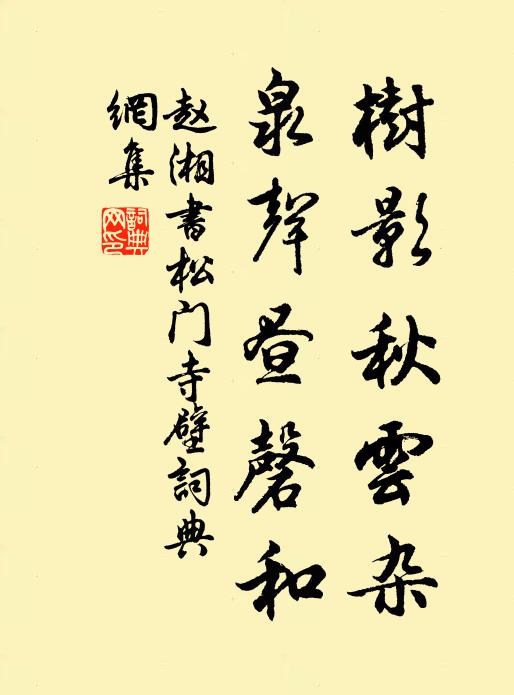 樹影秋雲杂
泉聲昼磬和
赵湘書松门寺壁詞典
網集
詞典網印